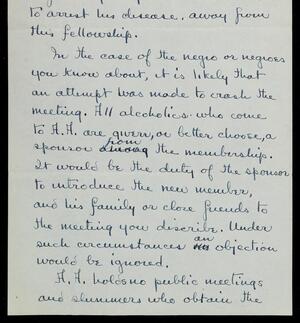 to arrest his disease, away from
this fellowship.
In the case of the negro or negroes
you know about, it is likely that
an attempt was made to crash the
meeting. All alcoholics who come
to A.A. are given, or better choose, a
sponsor from the membership.
It would be the duty of the sponsor
to introduce the new member,
and his family or close friends to
the meeting you discribe. Under
such circumstances an objection
would be ignored.
A.A. holds no public meetings
and slummers who obtain the